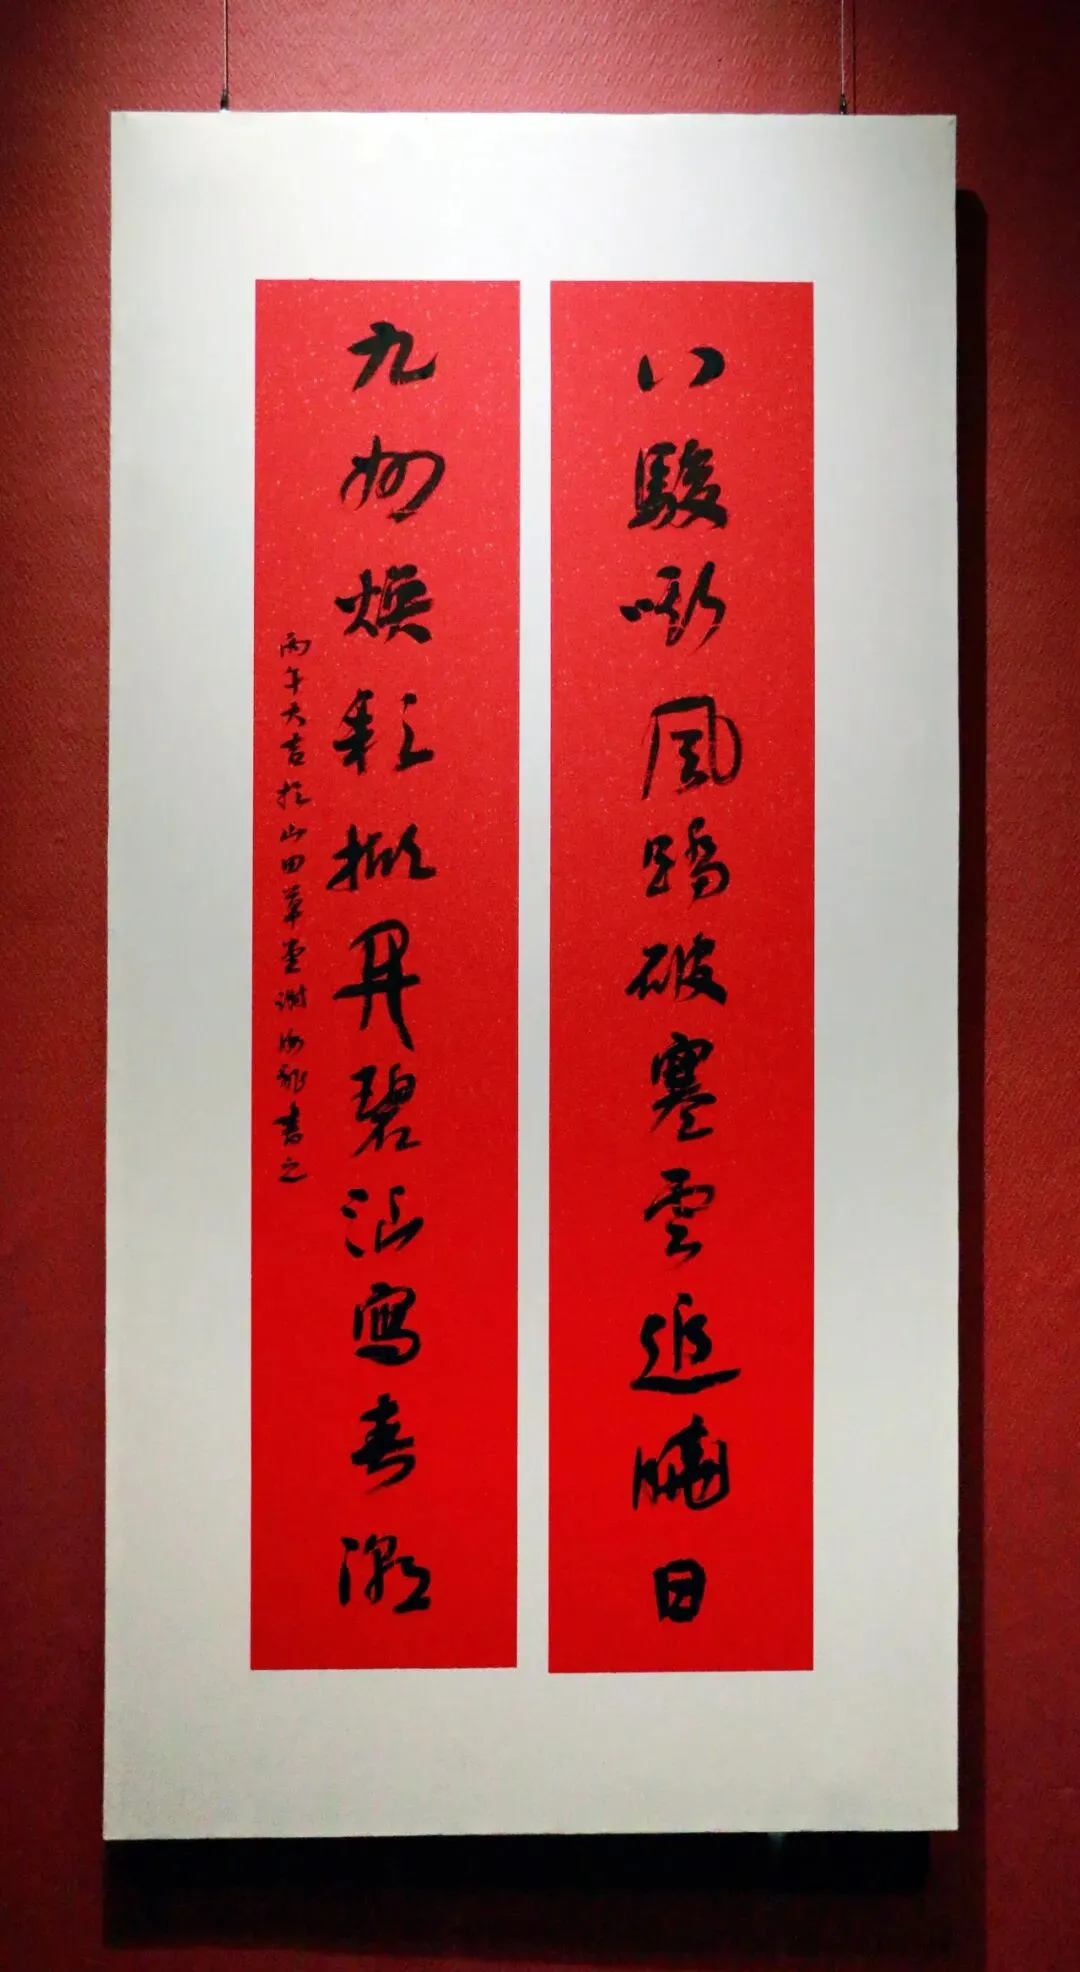 八駿嘶風蹄破寒雲追曉日
九州煥彩撇開碧沼寫春潮
丙午大吉於山田草堂謝海龍書之